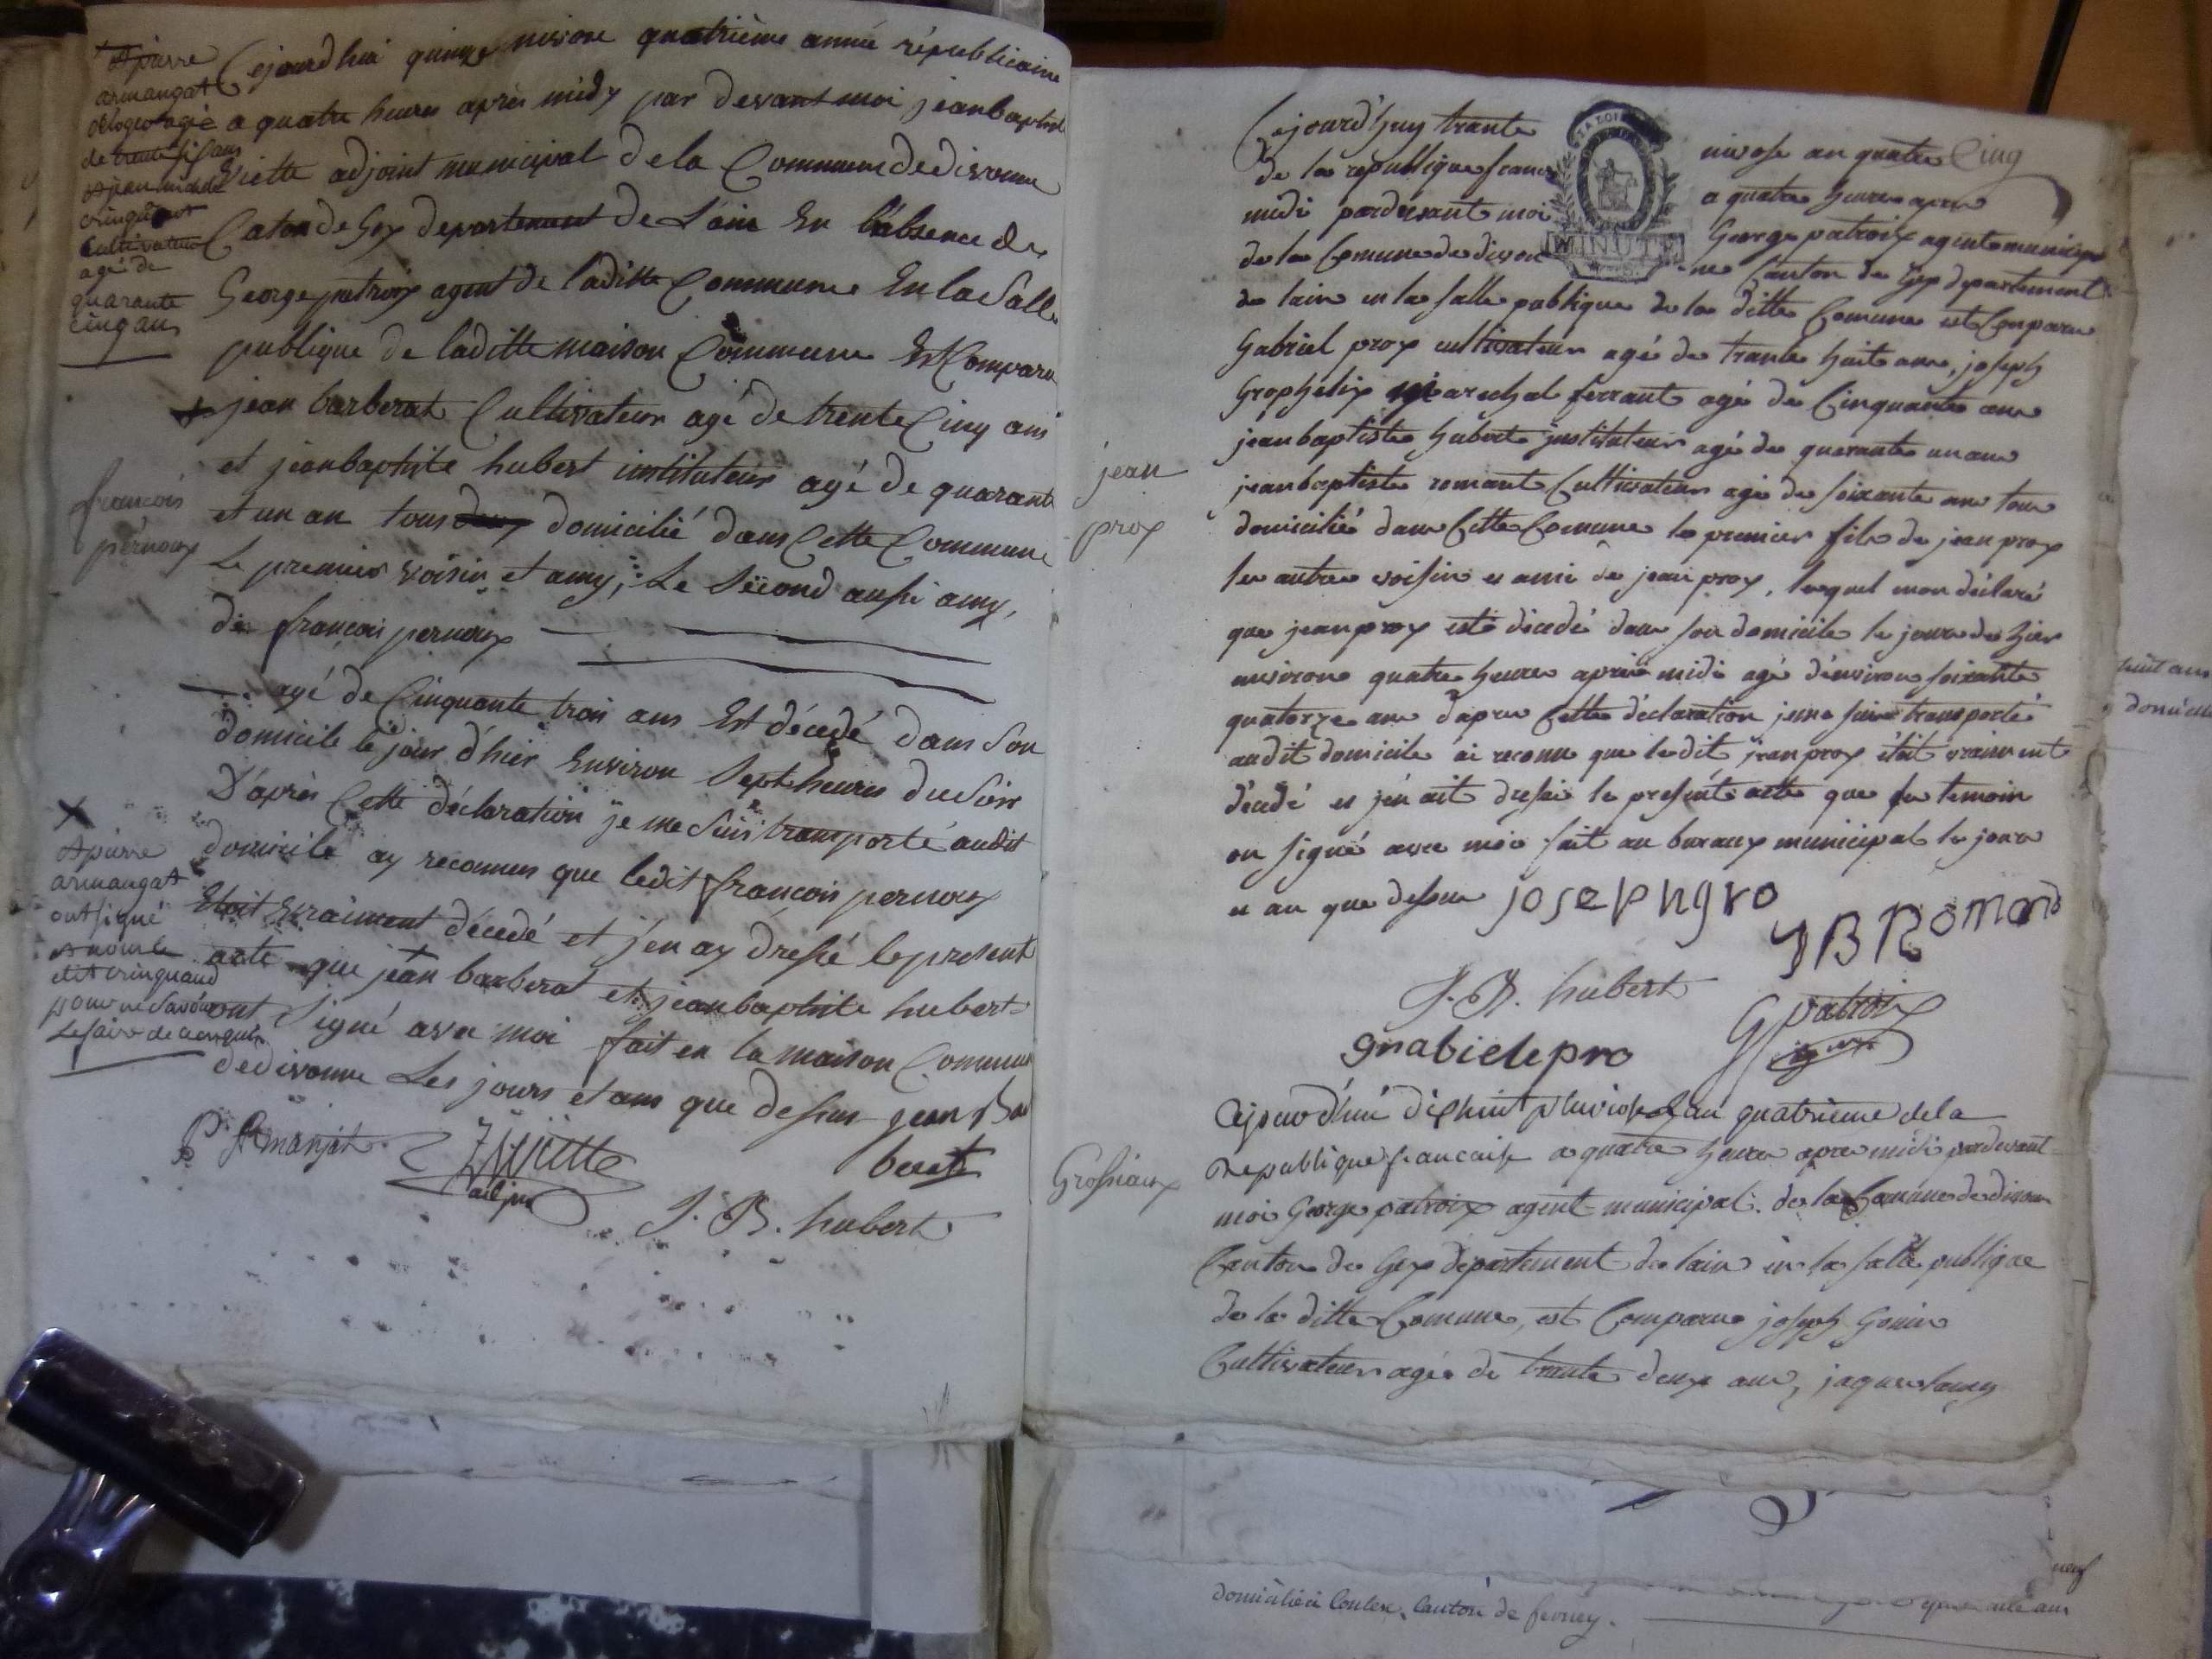 Cejourdhui quinze nivose quatrième année républicaine
a quatre heures après midy par devant moi jeanbaptiste
Viette adjoint municipal de la Commune de divonne
Caton de Gex departement de L'ain En l'absence de
George patroix agent de laditte Commune En la Salle
publique de laditte maison Commune Est Comparu
jean barberat Cultivateur agé de trente Cinq ans
et jeanbaptiste hubert instituteur agé de quarante
et un an tous deux domicilié dans Cette Commune
Le premier voisin et amy, Le Second aussi amy,
de françois pernoux
agé de Cinquante trois ans Est décédé dans Son
domicile le jour d'hier Environ Sept heures du Soir
D'après Cette déclaration je me Suis transporté audit
domicile ay reconnu que ledit françois pernoux
Etoit vraiment décedé et j'en ay dressé le présent
acte que jean barberat et jeanbaptiste hubert
ont Signé avec moi fait en la maison Commune
de divonne Les jours et ans que dessus jean Bar
berat
P Armanjat
Viette
adjoint
J. B. hubert
& pierre
armangat
agé
de trente six ans
cultivateur
agé de
quarante
cinq ans
françois
pernoux
& pierre
armangat
ont signé
pour ne Savoir
Le faire de ce enquis
Cejourd'huy trante nivose an quatre Cinq
de la republique franc a quatre heure apres
midi pardevant moi George patroix agent municip
de la Comune de divon ne Canton de Gex departement
de lain en la salle publique de la ditte Comune est Conparu
Gabriel prox cultivateur agé de trante huit ans, joseph
Grophelix marechal ferrant agé de Cinquante ans
jeanbaptiste hubert instituteur agé de quarante un ans
jeanbaptiste romant Cultivateur agé de soixante ans tous
domicilié dans Cette Comune le premier fils de jean prox
les autres voisins et ami de jean prox, lesquel mon déclaré
que jean prox est décedé dans son domicile le jour de hier
environs quatre heures après midi agé d'environs soixante
quatorze ans d'apres Cette déclaration je me suis transporté
audit domicile ai reconu que le dit jean prox était vraiment
décedé et j'en ait dressé le présent acte que les temoin
on signé avec moi fait au buraux municipal le jour
et an que dessus josephgro
JB Romand
J. B. hubert
G patroix
gnabielepro
jean
prox
MINUTE
Cejourd'hui dixhuit pluviose Lan quatrieme dela
Republique francaise a quatre heures apres midi pardevant
moi George patroix agent municipal de la Comune de divonne
Canton de Gex département de lain en la salle publique
de la ditte Comune, est Comparu joseph Gonin
Cultivateur agé de trante deux ans, jaques
Grossiaux
huit ans
domicilié
domicilié à Conlex, Canton de ferney.